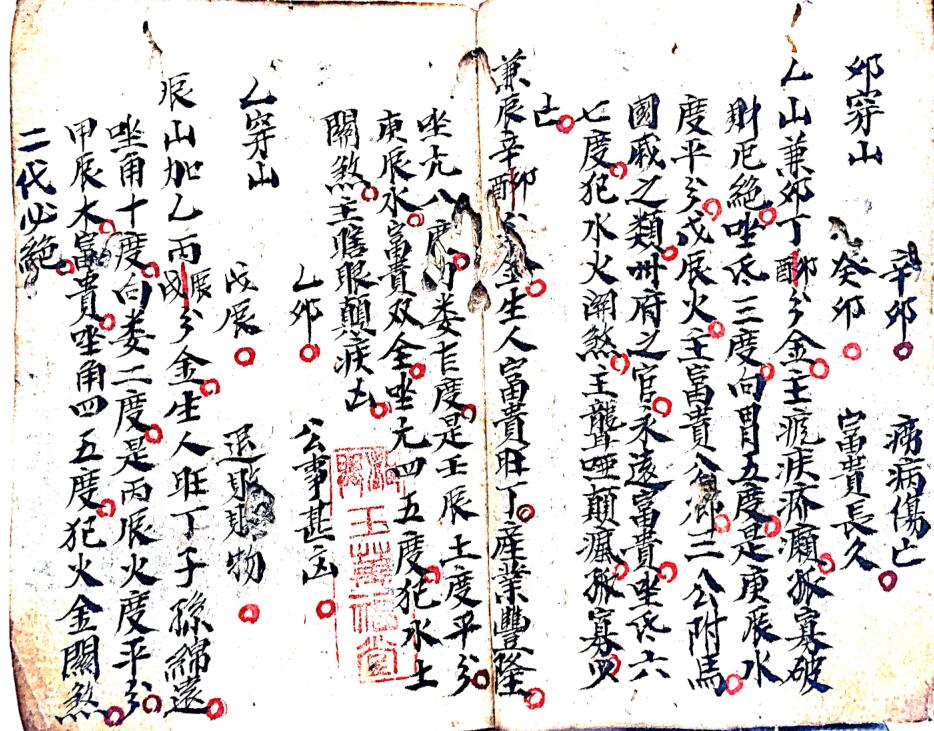 卯穿山
辛卯 癆病傷亡
癸卯 富貴長久
乙山兼卯丁卯丁酉分金主疲疾疥癩孤寡破
財厄絕坐氐三度向胃五度是庚辰水
度平分戊辰火主富貴公卿三公附馬
國戚之類州府之官永遠富貴坐氐六
七度犯水火關煞主聾啞顛瘋孤寡凶
亡
兼辰辛卯辛酉分金生人富貴旺丁産業豐隆
坐亢八度向婁七度是壬辰土度平分
庚辰水富貴双全坐亢四五度犯水土
關煞主瞎眼顛疾凶
乙穿山
乙卯 公事甚凶
戊辰 退財物
辰山加乙丙辰丙戌分金生人旺丁子孫綿遠
坐角十度向婁二度是丙辰火度平分
甲辰木富貴坐角四五度犯火金關煞
二代必絕
玉英福堂